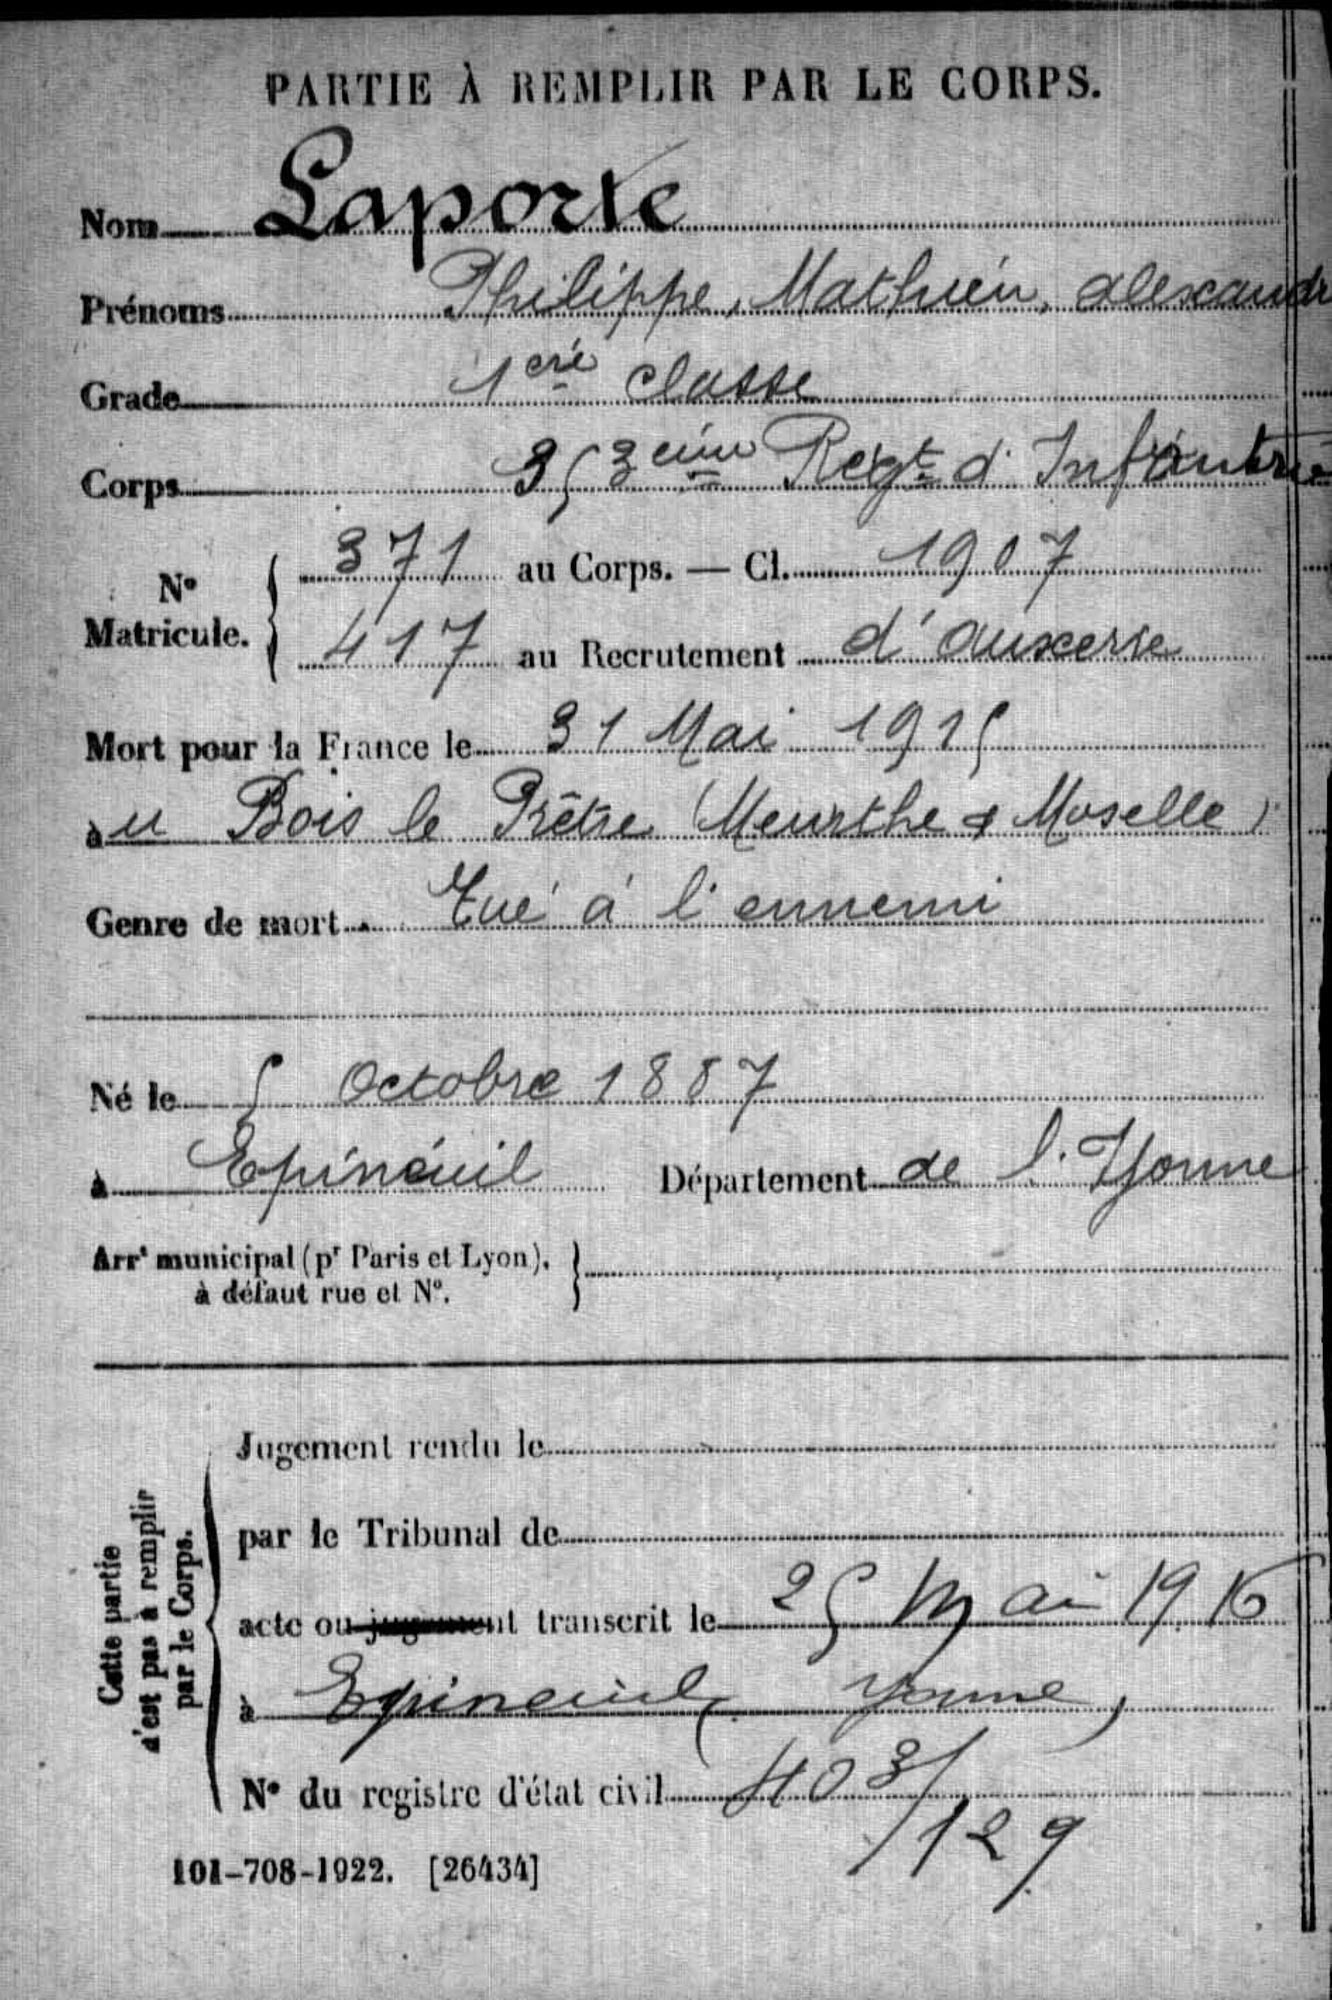 PARTIE À REMPLIR PAR LE CORPS.
Nom Laporte
Prénoms Philippe, Mathieu, alexandr
Grade 1ere classe
Corps 353eme Regt d'Infanterie
No Matricule. { 371 au Corps. — Cl. 1907
417 au Recrutement d'auxerre
Mort pour la France le 31 Mai 1915
au Bois le Prêtre (Meurthe & Moselle)
Genre de mort Tué à l'ennemi
Né le 5 Octobre 1887
à Epineuil Département de l'Yonne
Arrt municipal (pr Paris et Lyon), }
à défaut rue et No.
Cette partie
n'est pas à remplir
par le Corps.
Jugement rendu le
par le Tribunal de
acte ou jugement transcrit le 25 Mai 1916
à Epineuil (Yonne)
No du registre d'état civil 403/
/129
101-708-1922. [26434]